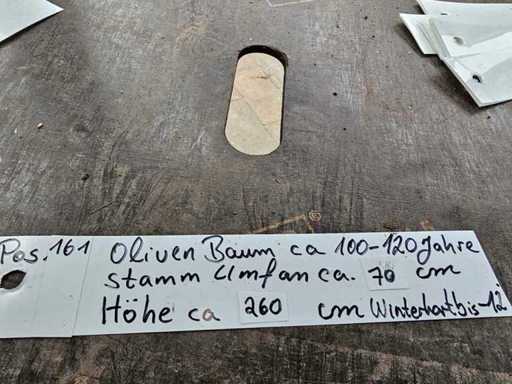 Pos. 161 Oliven Baum ca 100-120 Jahre
Stamm Umfan ca. 70 cm
Höhe ca 260 cm Winterhart bis -12°